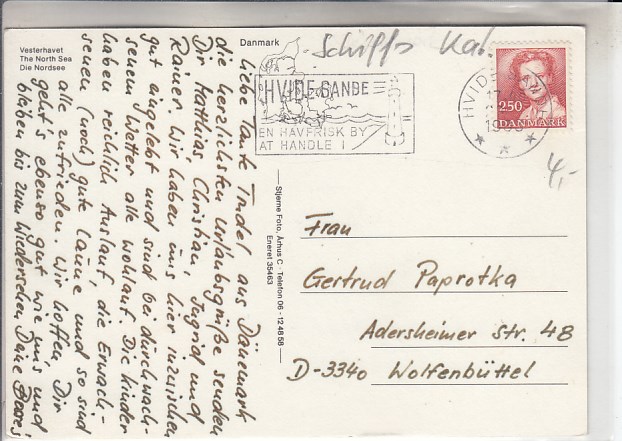 Vesterhavet
The North Sea
Die Nordsee
Danmark
Schiffs
HVIDE SANDE
EN HAVFRISK BY
AT HANDLE I
HVIDE
2.50
DANMARK
4,-
Liebe Tante Trudel, aus Dänemark
die herzlichsten Urlaubsgrüße senden
Dir Matthias, Christian, Ingrid und
Rainer. Wir haben uns hier inzwischen
gut eingelebt und sind bei durchwach-
senem Wetter alle wohlauf. Die Kinder
haben reichlich Auslauf, die Erwach-
senen (noch) gute Laune und so sind
alle zufrieden. Wir hoffen, Dir
geht's ebenso gut wie uns und
bleiben bis zum Wiedersehen Deine
Stjerne Foto, Århus C - Telefon 06 - 12 48 58
Eneret 35463
Frau
Gertrud Paprotka
Adersheimer Str. 48
D-3340 Wolfenbüttel